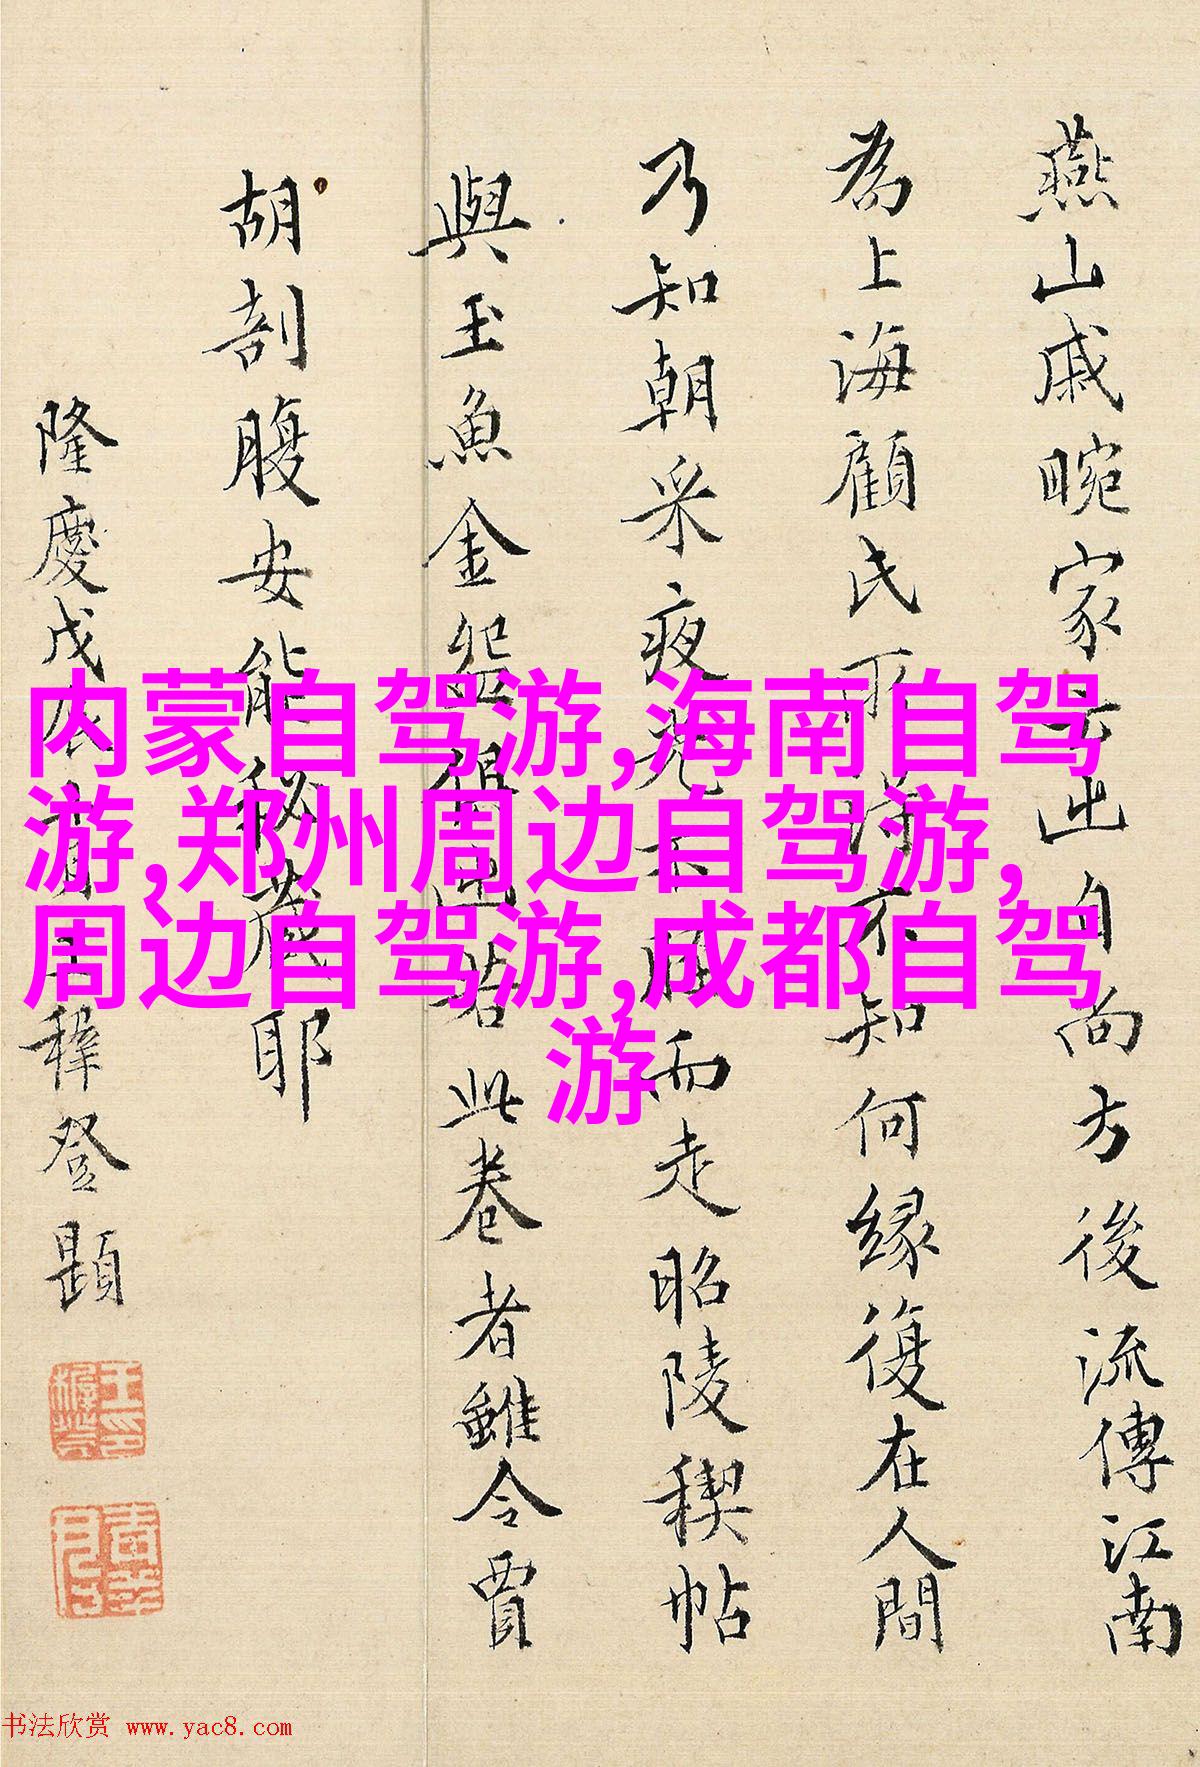 燕山戚畹家出自尚方後流傳江南
為上海顧氏所得不知何緣復在人間
乃知朝采夜光不脛而走昭陵稧帖
與玉魚金盌俱出若此卷者雖令賈
胡剖腹安能祕藏耶
隆慶戊辰月王穉登題
内蒙自驾游,海南自驾
游,郑州周边自驾游,
周边自驾游,成都自驾
游
书法欣赏 www.yac8.com